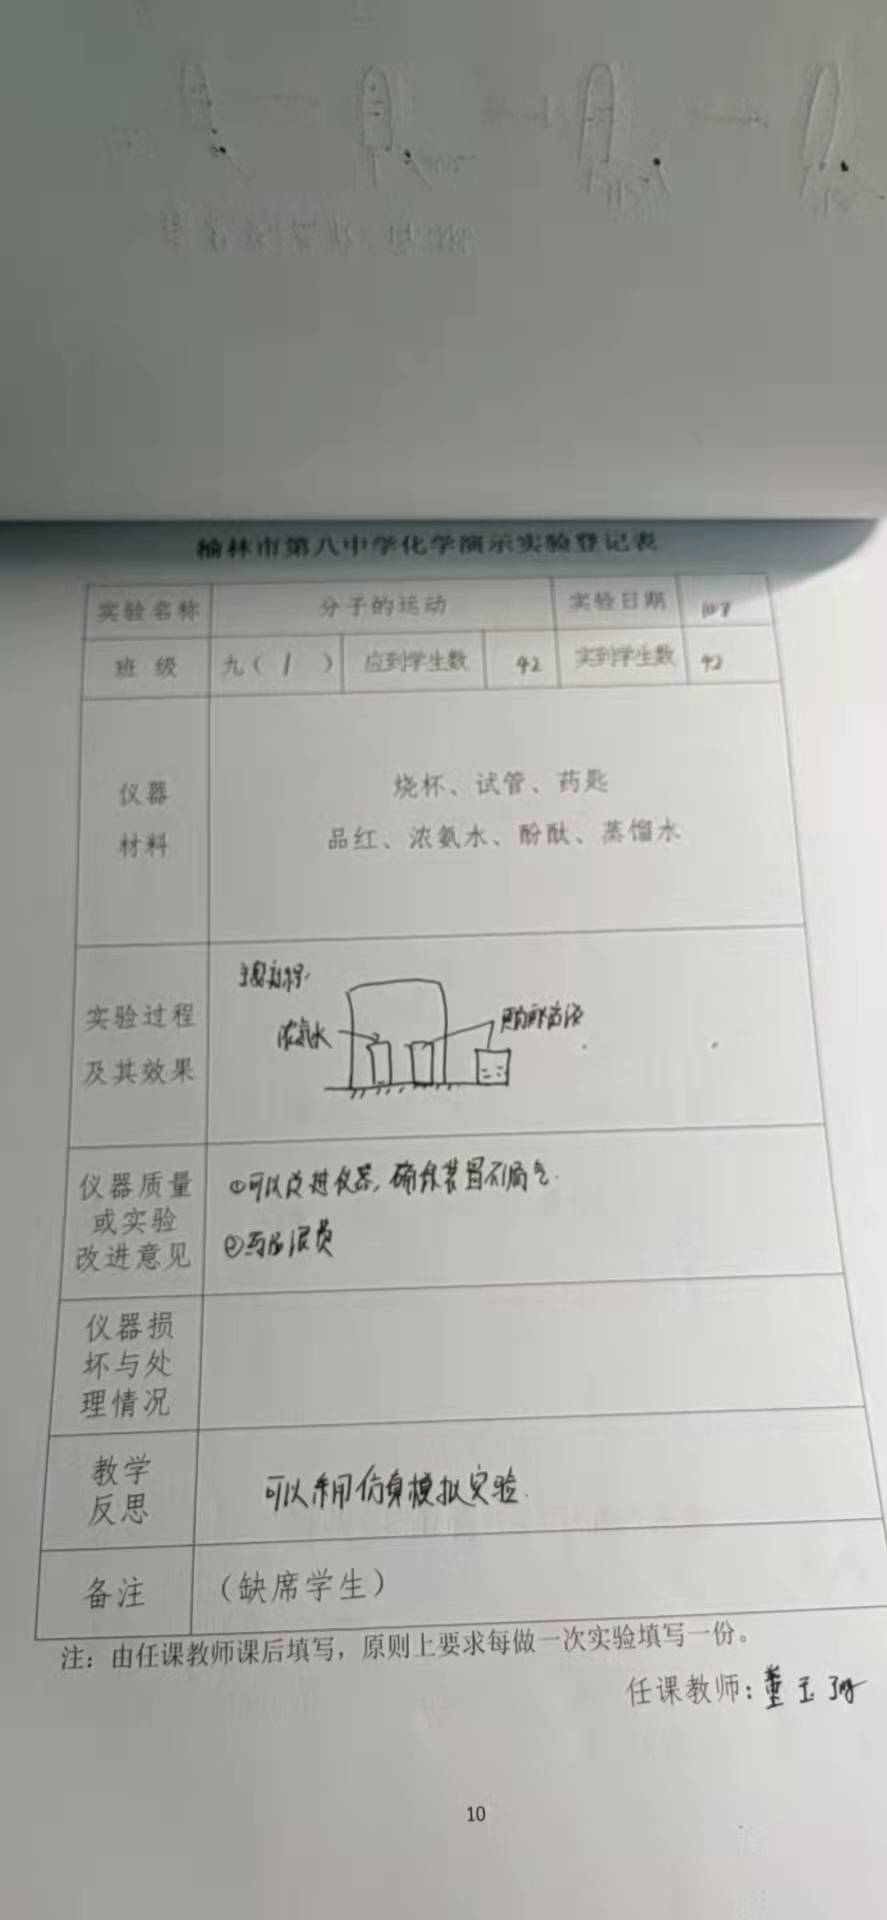 榆林市第八中学化学演示实验登记表
实验名称 分子的运动 实验日期 10.7
班 级 九（ 1 ） 应到学生数 42 实到学生数 42
仪器
材料
烧杯、试管、药匙
品红、浓氨水、酚酞、蒸馏水
实验过程
及其效果
浓氨水
仪器质量
或实验
改进意见
①可以改进仪器，确保装置不漏气.
②药品浪费
仪器损
坏与处
理情况
教学
反思
可以利用仿真模拟实验.
备注 （缺席学生）
注：由任课教师课后填写，原则上要求每做一次实验填写一份。
任课教师：董玉
10